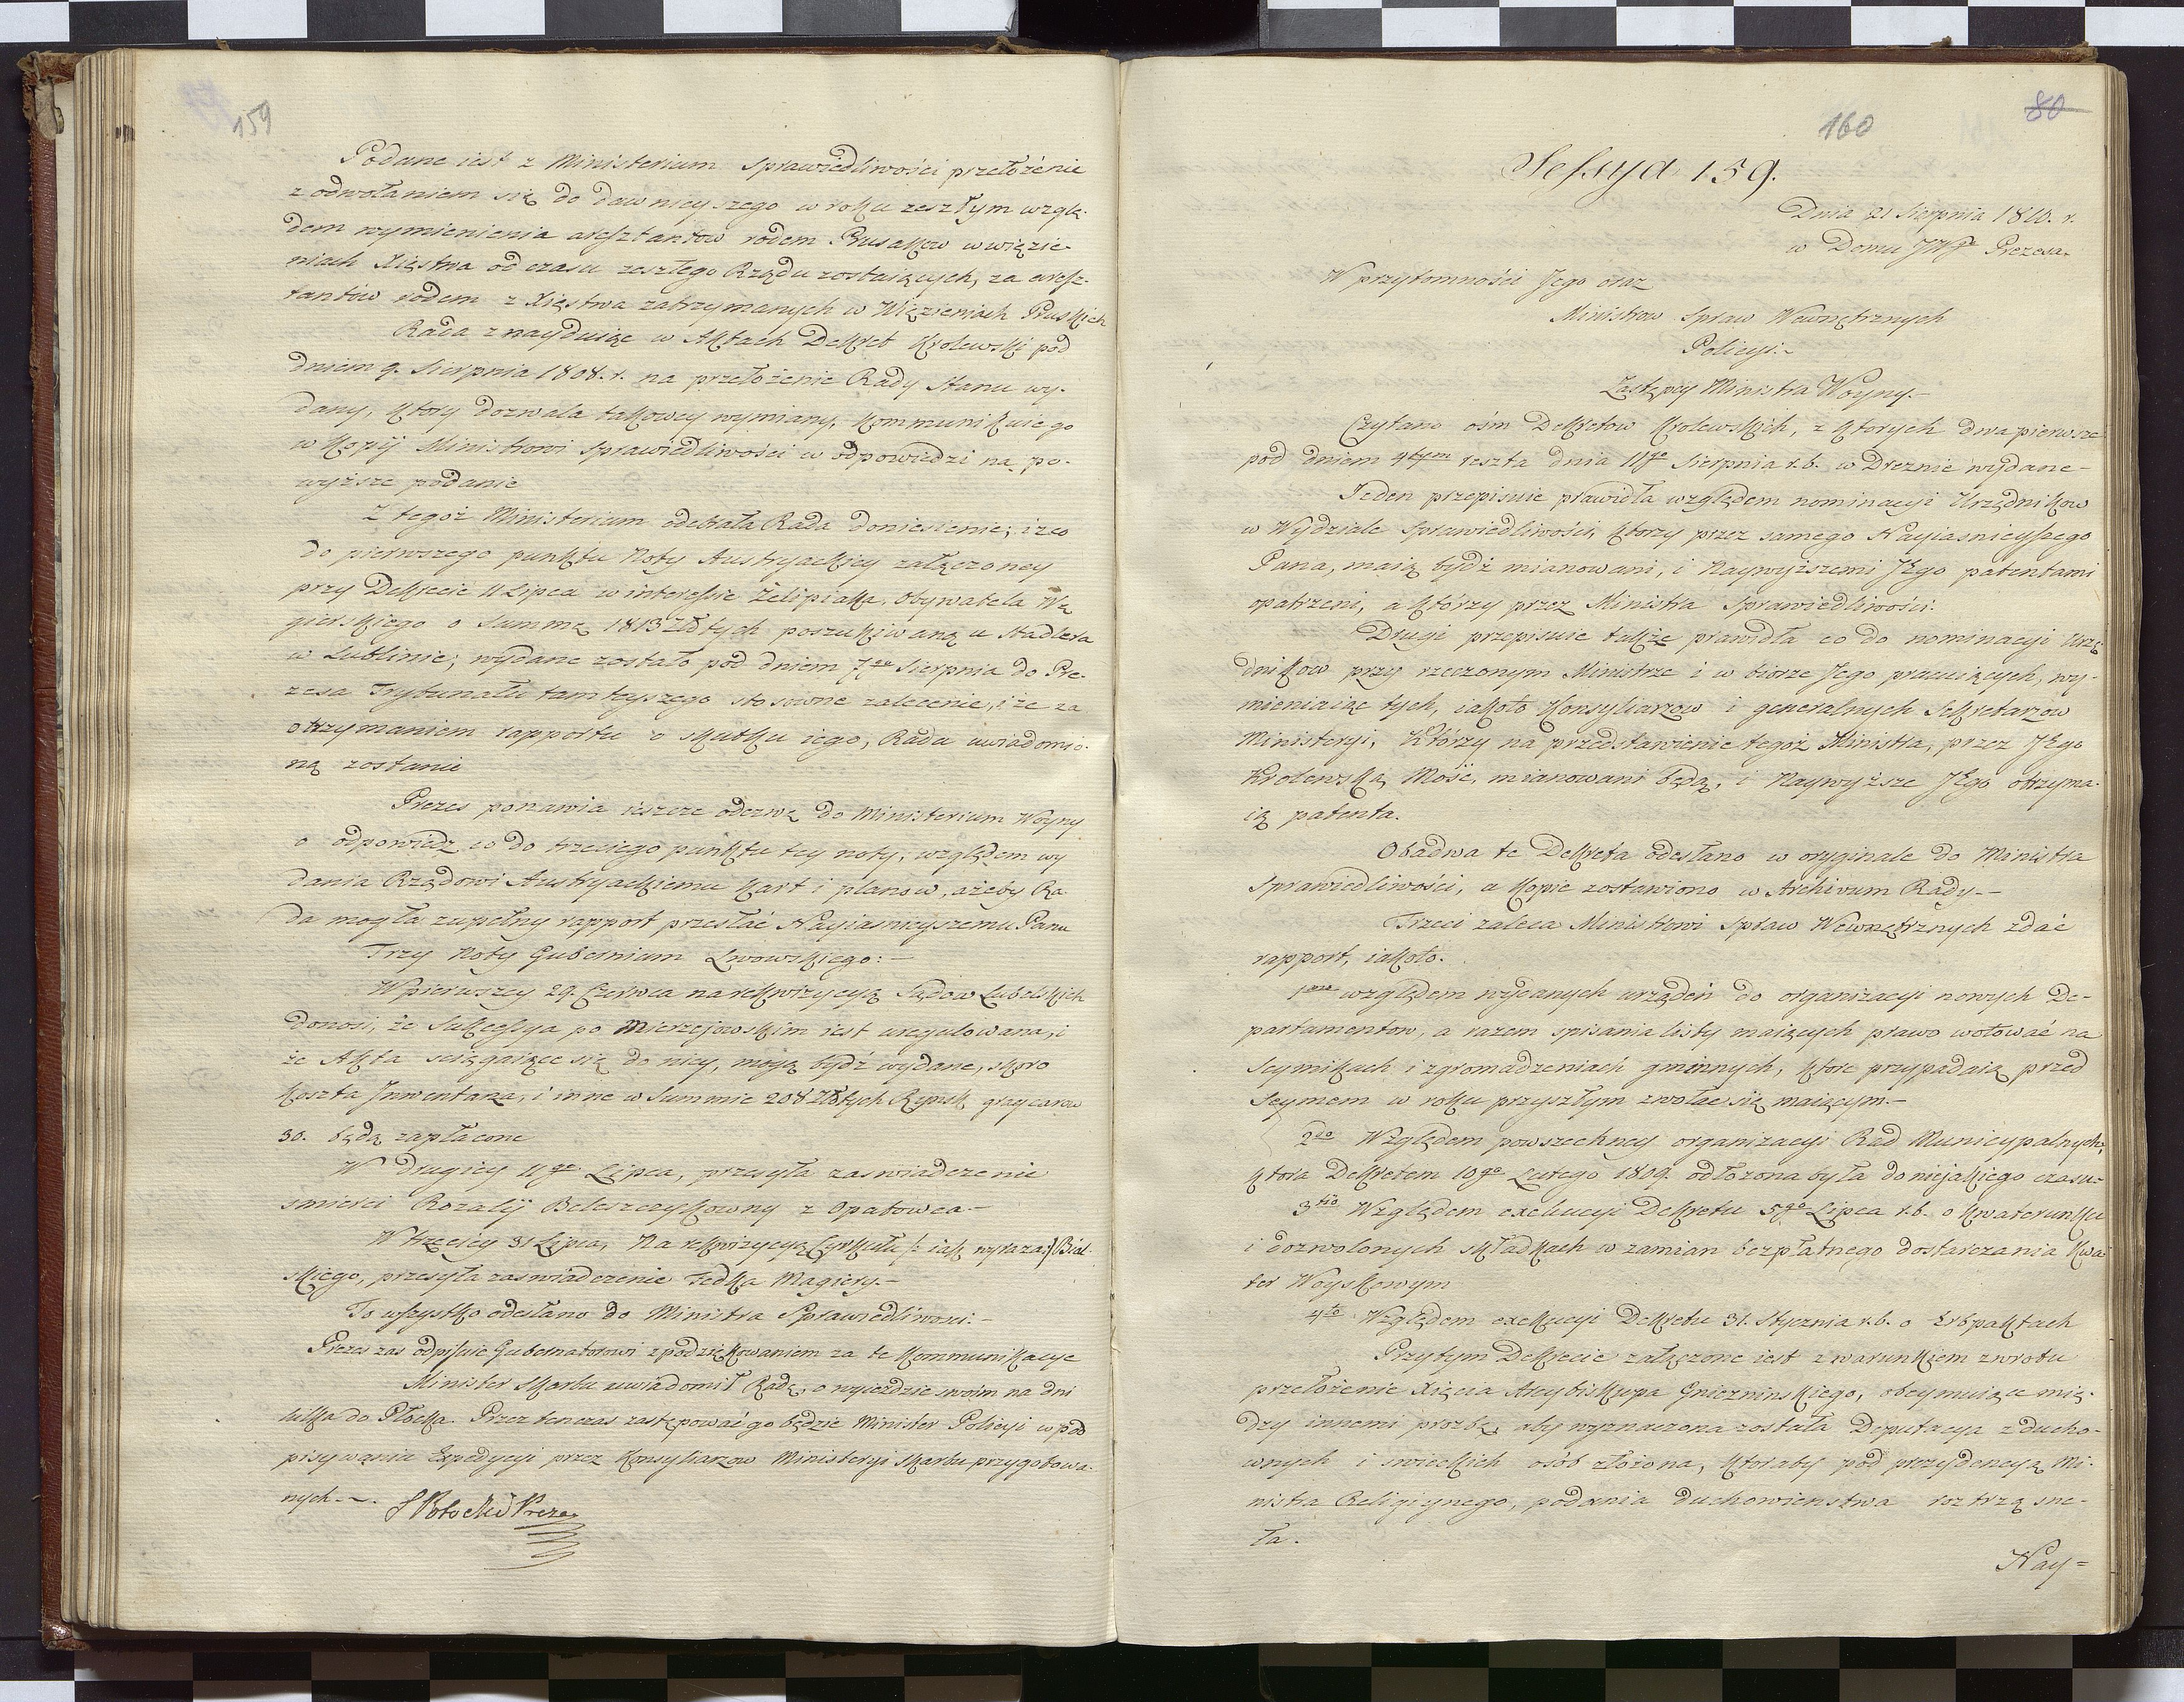 159
Podane iest z Ministerium Sprawiedliwości przełożenie
z odwołaniem się do dawnieyszego w roku zeszłym wzglę-
dem wymienienia aresztantow rodem Prusakow w więzie-
niach Xięstwa od czasu zeszłego Rządu zostaiących, za aresz-
tantów rodem z Xięstwa zatrzymanych w Więzieniach Pruskich
Rada znayduiąc w Aktach Dekret Krolewski pod
dniem 9. Sierpnia 1808. r. na przełożenie Rady Stanu wy-
dany, ktory dozwala takowey wymiany, kommunikuie go
w kopij Ministrowi Sprawiedliwości w odpowiedzi na po-
wyższe podanie
Z tegoż Ministerium odebrała Rada doniesienie; iż co
do pierwszego punktu Noty Austryackiey załączoney
przy Dekrecie 11 Lipca w interessie Żelipiaka, Obywatela Wę
gierskiego o Summę 1813 Złtych poszukiwaną u Stadlera
w Lublinie; wydane zostało pod dniem 7go Sierpnia do Pre-
zesa Trybunału tamteyszego stosowne zalecenie, i że za
otrzymaniem rapportu o skutku iego, Rada uwiadomio-
ną zostanie
Prezes ponawia ieszcze odezwę do Ministerium Woyny
o odpowiedz co do trzeciego punktu tey noty, względem wy
dania Rządowi Austryackiemu kart i planow, ażeby Ra
da mogła zupełny rapport przesłać Nayiasnieyszemu Panu
Trzy Noty Gubernium Lwowskiego:—
W pierwszey 29. Czerwca na rekwizycyą Sądow Lubelskich
donosi, że Sukcessya po Mierzejowskim iest uregulowana, i
że Akta sciągaiące się do niey, mogą bydź wydane, skoro
koszta Inwentarza, i inne w Summie 208 Złtych Ryńsk. graycarow
30. będą zapłacone
W drugiey 11go Lipca, przesyła zaswiadczenie
smierci Rozalij Beleszczykowny z Opatowca—
W trzeciey 31 Lipca, Na rekwizycyą Cyrkułu /: iak wyraża:/ Bial-
skiego, przesyła zaswiadczenie Fedka Magiery.—
To wszystko odesłano do Ministra Sprawiedliwosci.—
Prezes zas odpisuie Gubernatorowi z podziękowaniem za te kommunikacye
Minister Skarbu uwiadomił Radę, o wyieździe swoim na dni
kilka do Płocka. Przez ten czas zastępować go będzie Minister Policyi w pod
pisywaniu Expedycyi przez Konsyliarzow Ministeryi Skarbu przygotowa-
nych.—.
S Potocki Prezes
80
160
Sessya 159.
Dnia 21 Sierpnia 1810. r.
w Domu JWgo Prezesa.
W przytomności Jego oraz
Ministrow Spraw Wewnętrznych
Policyi.—
Zastępcy Ministra Woyny.—
Czytano ośm Dekretow Krolewskich, z ktorych dwa pierwsze
pod dniem 4tym reszta dnia 11go Sierpnia r.b. w Dreznie wydane—
Jeden przepisuie prawidła względem nominacyi Urzędnikow
w Wydziale Sprawiedliwości, ktorzy przez samego Nayiasnieyszego
Pana, maią bydź mianowani, i Naywyższemi JEgo patentami
opatrzeni, a którzy przez Ministra Sprawiedliwości.
Drugi przepisuie także prawidła co do nominacyi Urzę-
dnikow przy rzeczonym Ministrze i w biórze Jego pracuiących, wy-
mieniaiąc tych, iakoto Konsyliarzow i generalnych Sekretarzow
Ministeryi, Którzy na przedstawienie tegoż Ministra, przez JEgo
Krolewską Mość, mianowani będą, i Naywyższe JEgo otrzyma-
ią patenta.
Obadwa te Dekreta odesłano w oryginale do Ministra
Sprawiedliwości, a kopie zostawiono w Archivum Rady.—
Trzeci zaleca Ministrowi Spraw Wewnętrznych zdać
rapport, iakoto.
1mo względem wydanych urządeń do organizacyi nowych De-
partamentow, a razem spisania listy maiących prawo wotować na
Seymikach i zgromadzeniach gminnych, ktore przypadaią przed
Seymem w roku przyszłym zwołać się maiącym.—
2do Względem powszechney organizacyi Rad Municypalnych,
ktora Dekretem 10go Lutego 1809. odłożona była do niejakiego czasu—
3tio Względem exekucyi Dekretu 5go Lipca r.b. o kwaterunku
i dozwolonych składkach w zamian bezpłatnego dostarczania kwa
ter Woyskowym
4to Względem exekucyi Dekretu 31. Stycznia r.b. o Erbpaktach
Przytym Dekrecie załączone iest z warunkiem zwrotu
przełożenie Xięcia Arcybiskupa Gnieznińskiego, obeymuiące mię-
dzy innemi prozbę, aby wyznaczona została Deputacya z ducho-
wnych i swieckich osób złożona, ktoraby pod prezydencyą Mi-
nistra Religiynego, podania duchowienstwa roztrząsne-
ła.
Nay=